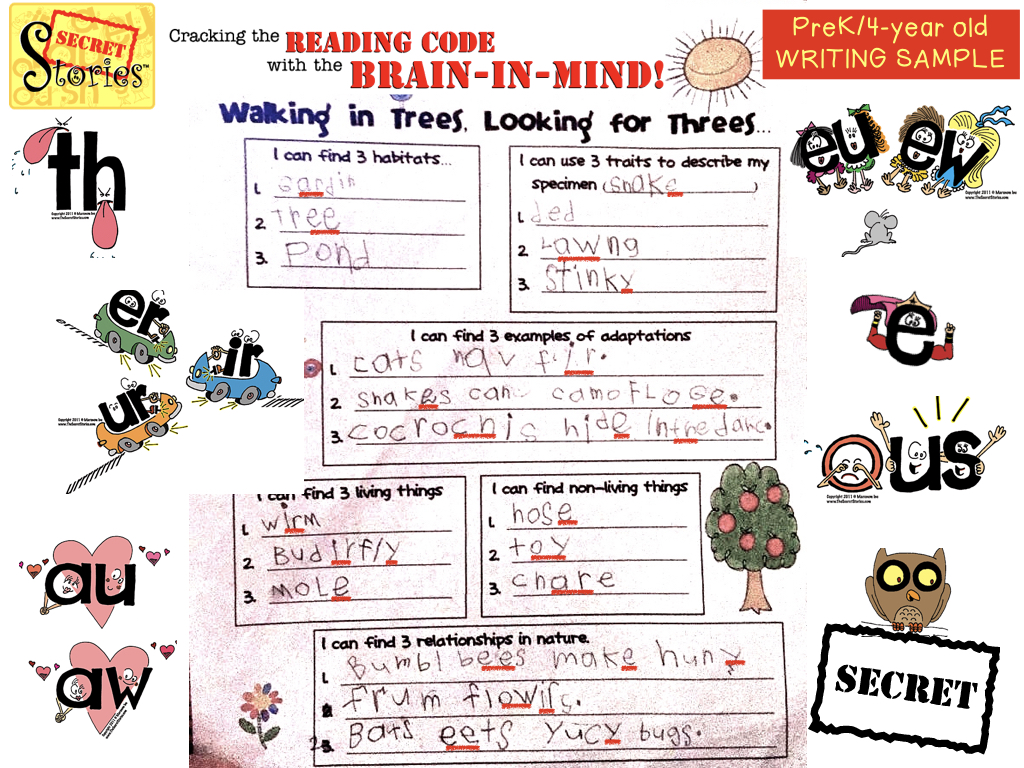 SECRET
Stories™
Cracking the READING CODE
with the BRAIN-IN-MIND!
PreK/4-year old
WRITING SAMPLE
Walking in Trees, Looking for Threes...
th
I can find 3 habitats...
1. gardin
2. Tree
3. Pond
I can use 3 traits to describe my
specimen (snake)
1. ded
2. Lawng
3. Stinky
eu ew
I can find 3 examples of adaptations
1. cats hav fir.
2. snakes can camoFLoge.
3. cocrochis hide inthe
er
ir
ur
e
ous
I can find 3 living things
1. wirm
2. Budirfly
3. mole
I can find non-living things
1. hose
2. toy
3. chare
au
aw
I can find 3 relationships in nature.
1. Bumbl bees make huny
2. frum flowirs.
3. Bats eets yucy bugs.
SECRET